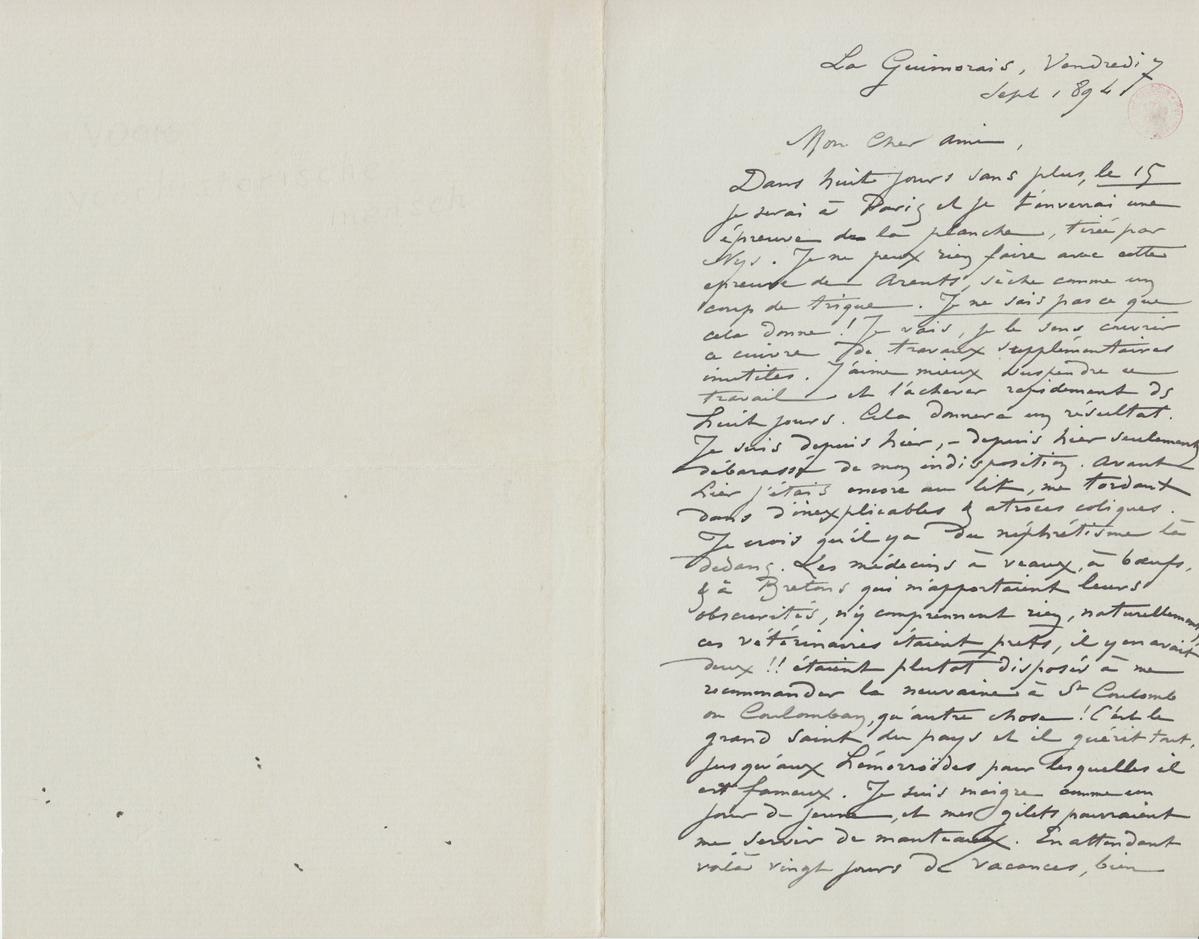 voor
voorhistorische
mensch
La Guimorais, Vendredi 7
Sept 1894
Mon Cher ami,
Dans huit jours sans plus, le 15
je serai à Paris et je t'enverrai une
épreuve de la planche, tirée par
Nys. Je ne peux rien faire avec cette
epreuve de Arents, sèche comme un
coup de trique. Je ne sais pas ce que
cela donne! Je vais, je le sens couvrir
ce cuivre de travaux supplémentaires
inutiles. J'aime mieux suspendre ce
travail et l'achever rapidement ds
huit jours. Cela donnera un résultat.
Je suis depuis hier, – depuis hier seulement
débarassé de mon indisposition. Avant
hier j'étais encore au lit, me tordant
dans d'inexplicables & atroces coliques.
Je crois qu'il y a du néphrétisme là
dedans. Les médecins à veaux, à bœufs,
& à Bretons qui m'apportaient leurs
obscurités, n'y comprennent rien, naturellement
ces vétérinaires étaient prets, il y en avait
deux!! étaient plutôt disposés à me
recommander la neuvaine à St Coulomb
ou Coulomban, qu'autre chose! C'est le
grand Saint du pays et il guérit tout,
jusqu'aux hémorroïdes pour lesquelles il
est fameux. Je suis maigre comme un
jour de jeune, et mes gilets pourraient
me servir de manteaux. En attendant
voilà vingt jours de vacances, bien